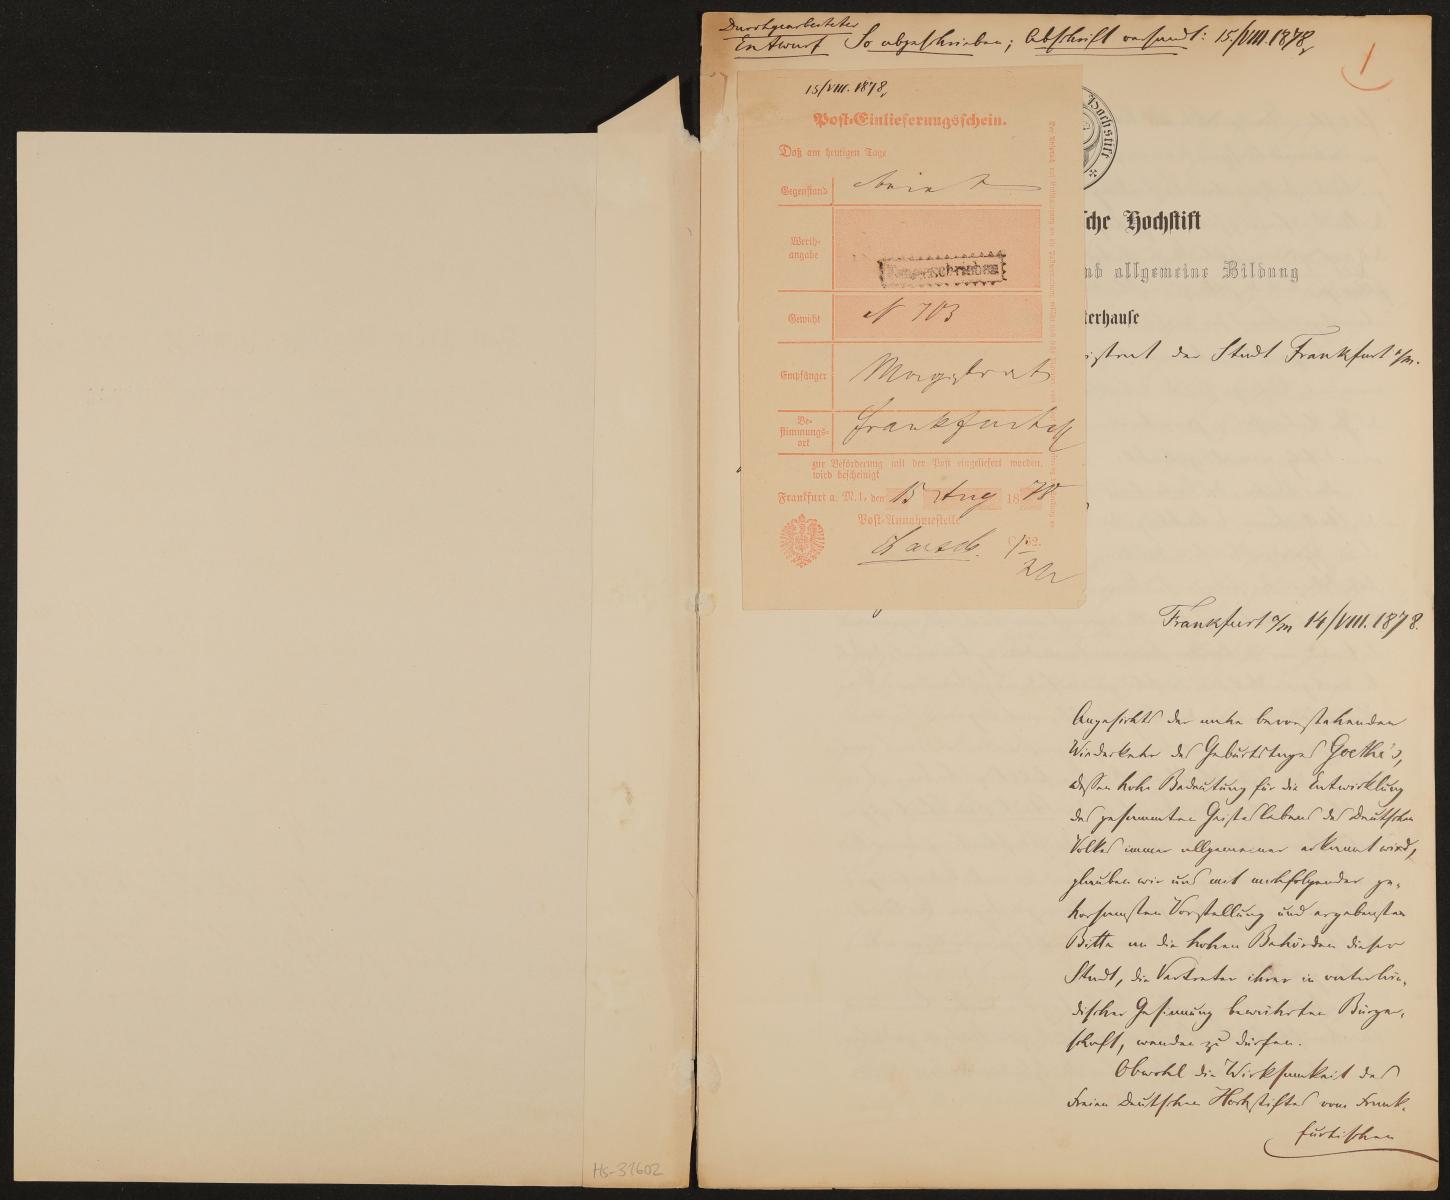 Durchgearbeiteter
Entwurf So abgeschrieben; Abschrift versandt: 15/VIII.1878,
1
15/VIII. 1878,
Post-Einlieferungsschein.
Daß am heutigen Tage
Gegenstand
Werth-
angabe
Eingeschrieben
Gewicht N 703
Empfänger Magistrat
Be-
stimmungs-
ort
Frankfurt
zur Beförderung mit der Post eingeliefert worden,
wird bescheinigt
Frankfurt a. M. 1., den 15 Aug 18 78
Post-Annahmestelle
C. 62.
Hochstift
sche Hochstift
nd allgemeine Bildung
terhause
istrat der Stadt Frankfurt a/m.
Frankfurt a/m 14/VIII.1878.
Angesichts der nahe bevorstehenden
Wiederkehr des Geburtstages Goethe's,
dessen hohe Bedeutung für die Entwicklung
des gesammten Geisteslebens des Deutschen
Volkes immer allgemeiner erkannt wird,
glauben wir uns mit nachfolgender ge-
horsamsten Vorstellung und ergebensten
Bitte an die hohen Behörden dieser
Stadt, die Vertreter ihrer in vaterlän-
discher Gesinnung bewährten Bürger-
schaft, wenden zu dürfen.
Obwohl die Wirksamkeit des
Freien Deutschen Hochstiftes vom Frank-
furtischen
Hs-31602